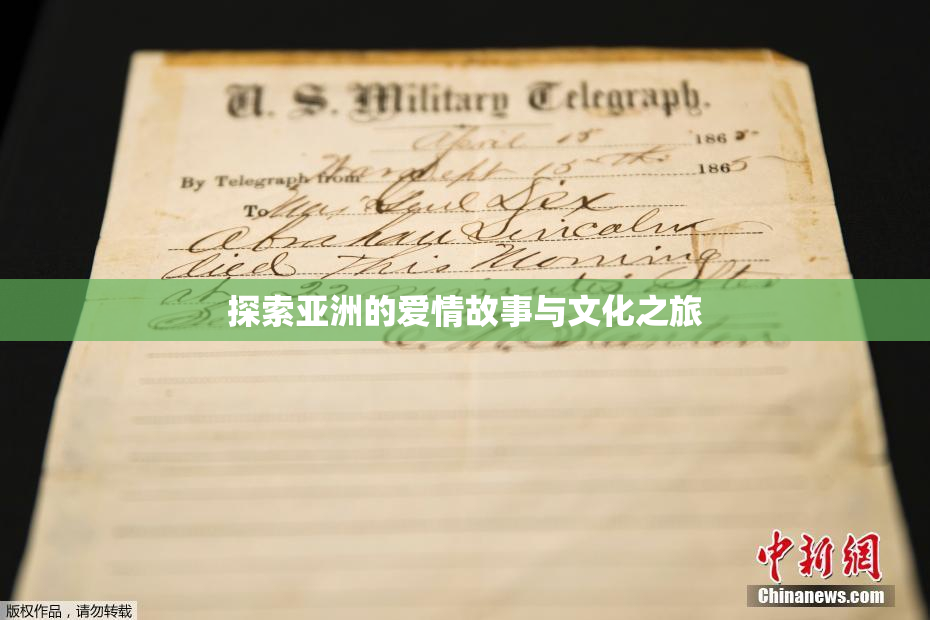 U. S. Military Telegraph.
April 15 1865
By Telegraph from War Dept 15th 1865
To Maj Genl Dix
Abraham Lincoln
died This Morning
at 22 minutes after
探索亚洲的爱情故事与文化之旅
E. M. Stanton
中新网
Chinanews.com
版权作品，请勿转载